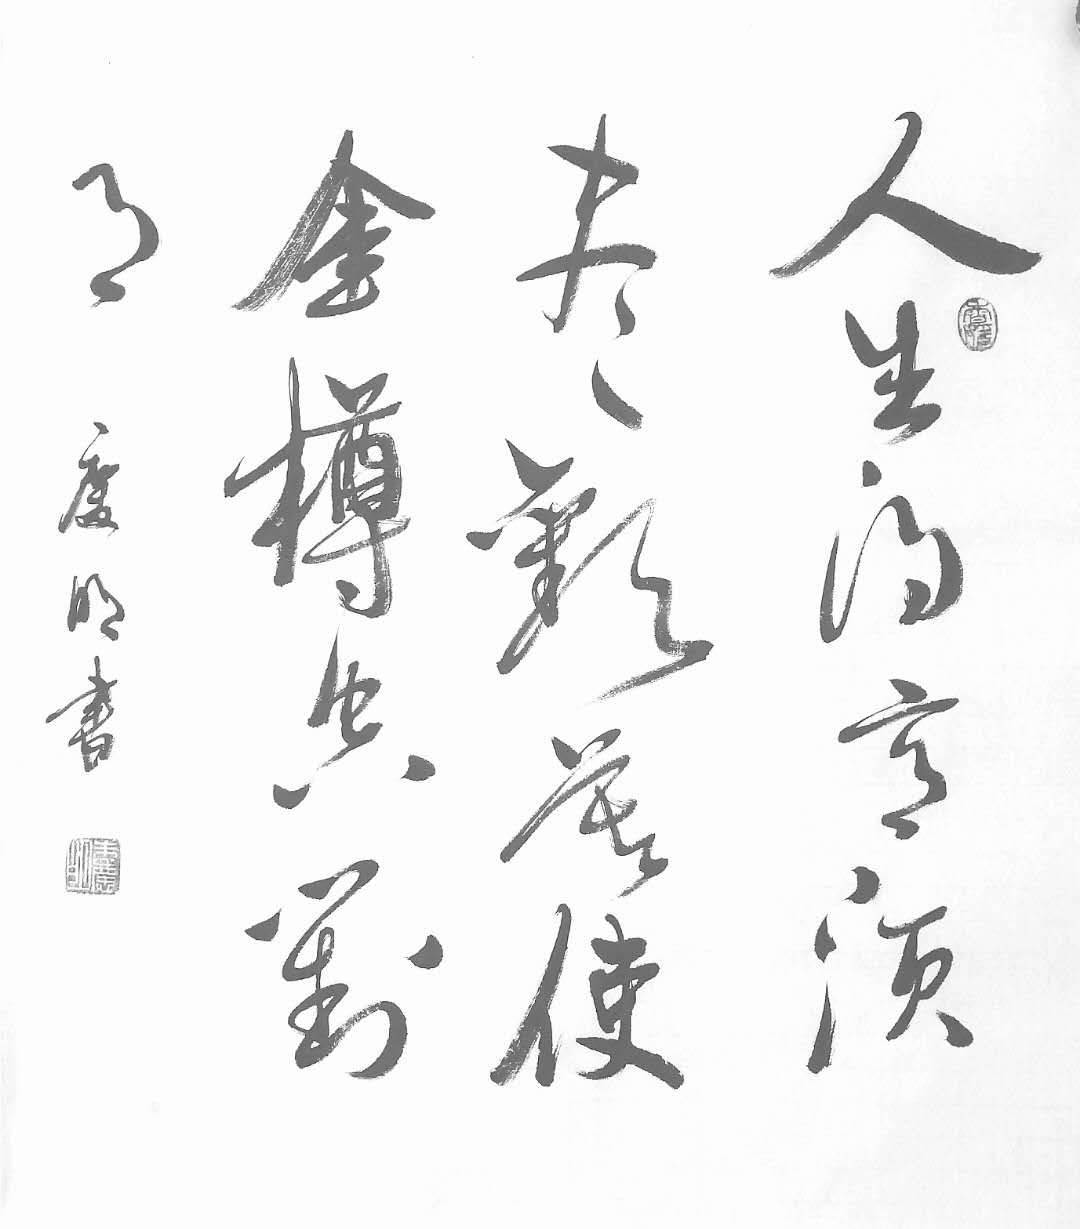 人生得意須
盡歡莫使
金樽空對
月 慶明書